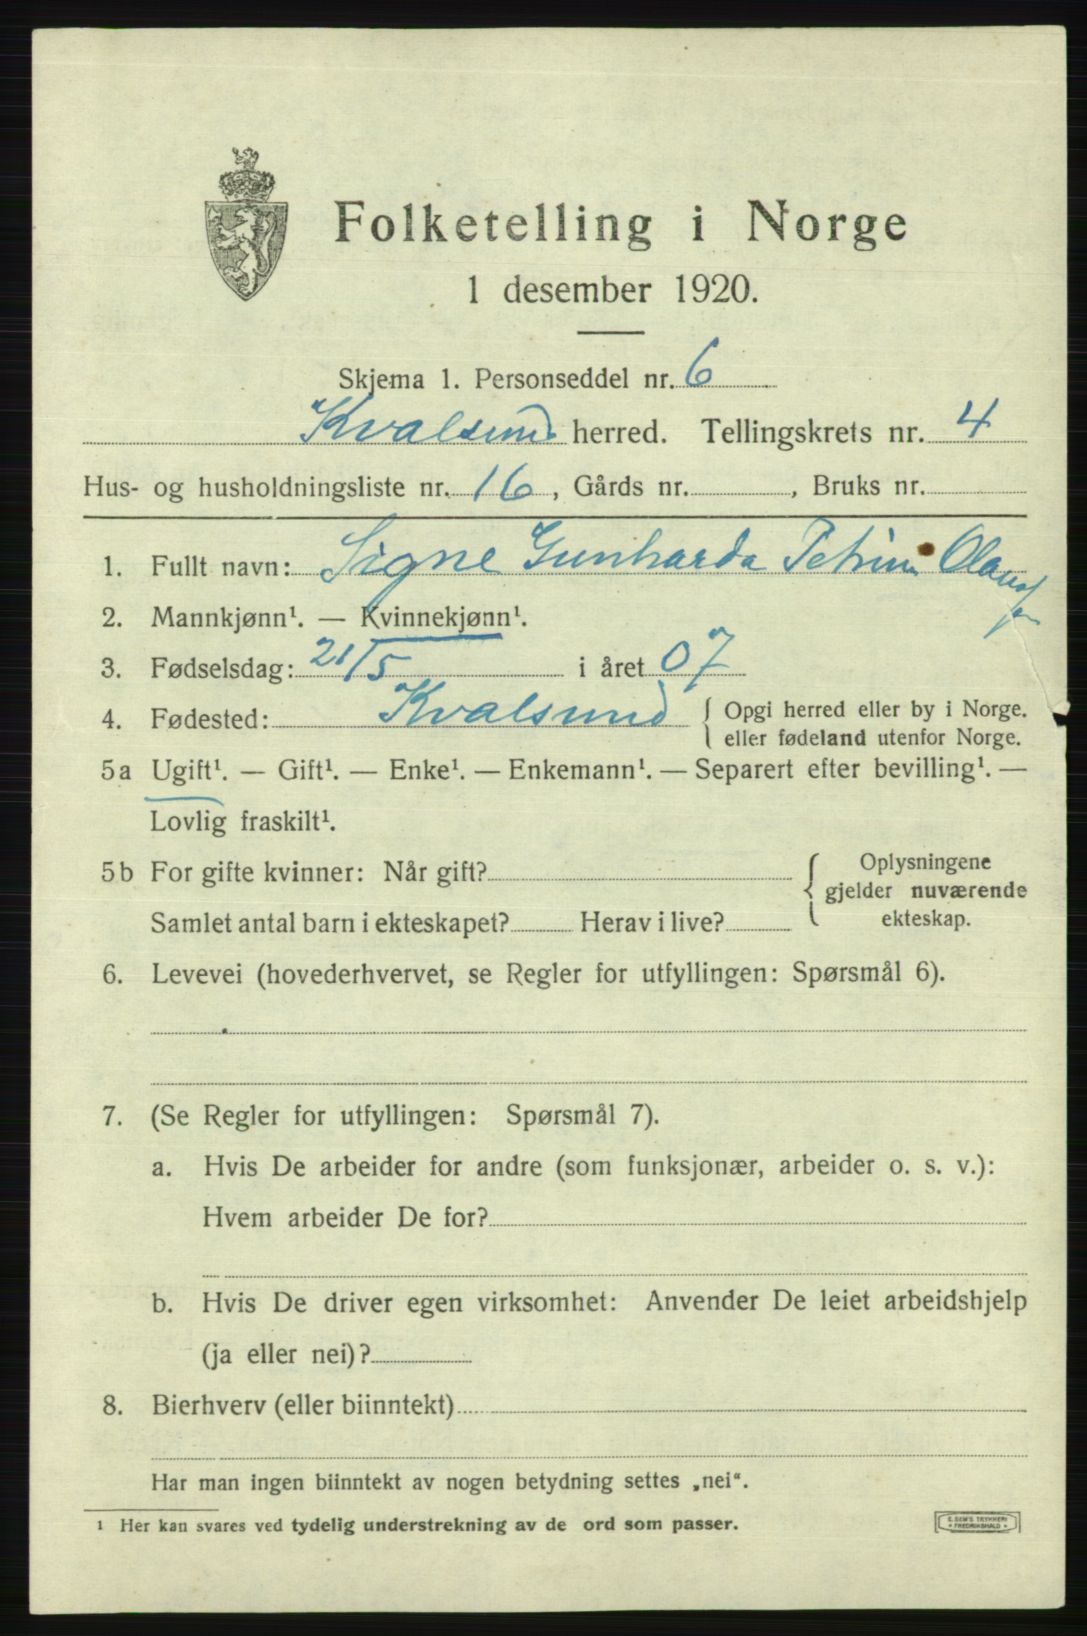 Folketelling i Norge
1 desember 1920.
Skjema 1. Personseddel nr. 6
Kvalsund herred. Tellingskrets nr. 4
Hus- og husholdningsliste nr. 16, Gårds nr. , Bruks nr.
1. Fullt navn: Signe Gunharda Petrine
2. Mannkjønn¹. — Kvinnekjønn¹.
3. Fødselsdag: 21/5 i året 07
4. Fødested: Kvalsund { Opgi herred eller by i Norge.
eller fødeland utenfor Norge.
5a Ugift¹. — Gift¹. — Enke¹. — Enkemann¹. — Separert efter bevilling¹. —
Lovlig fraskilt¹.
5b For gifte kvinner: Når gift? { Oplysningene
gjelder nuværende
ekteskap.
Samlet antal barn i ekteskapet? Herav i live?
6. Levevei (hovederhvervet, se Regler for utfyllingen: Spørsmål 6).
7. (Se Regler for utfyllingen: Spørsmål 7).
a. Hvis De arbeider for andre (som funksjonær, arbeider o. s. v.):
Hvem arbeider De for?
b. Hvis De driver egen virksomhet: Anvender De leiet arbeidshjelp
(ja eller nei)?
8. Bierhverv (eller biinntekt)
Har man ingen biinntekt av nogen betydning settes „nei“.
¹ Her kan svares ved tydelig understrekning av de ord som passer.
E. SEM'S TRYKKERI
• FREDRIKSHALD •